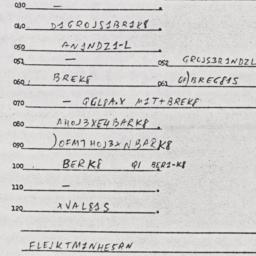 030 —
040 D1GROJS1BR1K8
050 AN1NDZ1-L
051 — 052 GROJS3R1NDZL
060 BREK8 061 G)BREG81S
070 — GGL8A.X M1T+BREK8
080 AHOJ3XE4BARK8
090 )OFM7HOJ3XNBARK8
100 BERK8 Q1 BER1-K8
110 —
120 XVAL81S
FLEJKTM1NHESAN